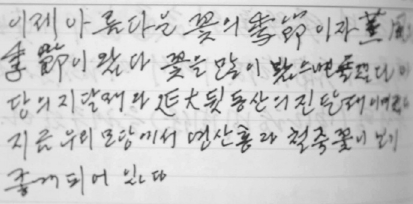 이제 아름다운 꽃의 季節이자 薰風
季節이 왔다 꽃을 많이 봤으면 좋겠다
당의 지달래와 延大뒷동산의 진달래
지금 우리 모당에서 영산홍과 철쭉꽃이 보기
좋게 되어 있다